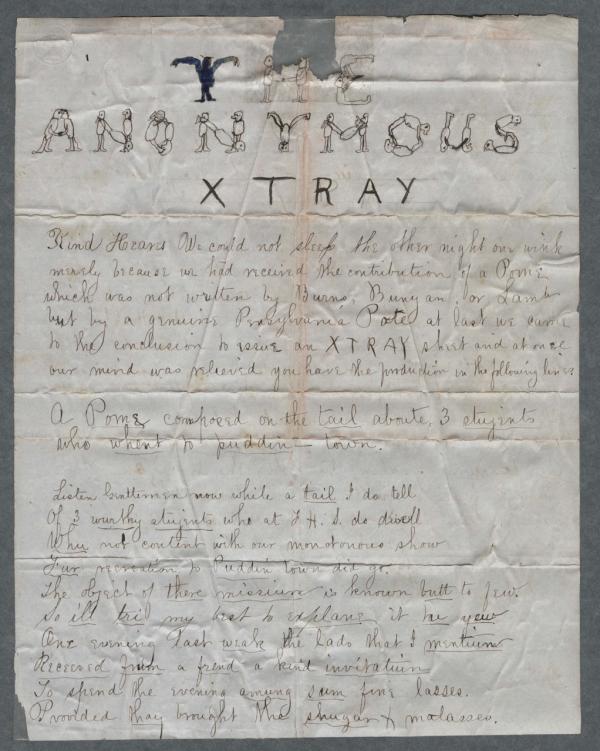 THE
ANONYMOUS
XTRAY
Kind Hearers We could not sleep the other night one wink
merely because we had received the contribution of a Pome
which was not written by Burns, Bunyan, or Lamb
but by a genuine Pensylvania Pote at last we came
to the conclusion to issue an XTRAY sheet and at once
our mind was relieved you have the production in the following lines
A Pome composed on the tail aboute, 3 stujents
who whent to puddin-town.
Listen Gentlemen now while a tail I do tell
Of 3 wurthy stujents who at F. H. S. do dwell
Whu not content with our monotonous show
Fur recreation to Puddin town did go.
The object of there missiun is known butt to few.
So ill tri my best to explane it tu yew
One evening last weak the lads that I mentiun
Receeved frum a frend a kind invitatiun
To spend the evening amung sum fine lasses.
Provided thay brought the shugar & malasses.